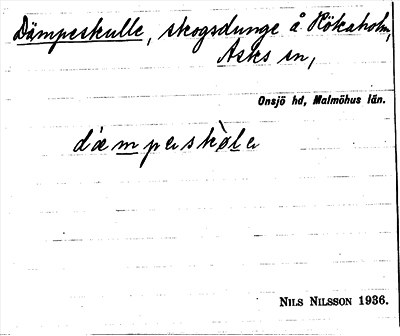 Dämpeskulle, skogsdunge å Rökaholm,
Asks sn,
Onsjö hd, Malmöhus län.
NILS NILSSON 1936.